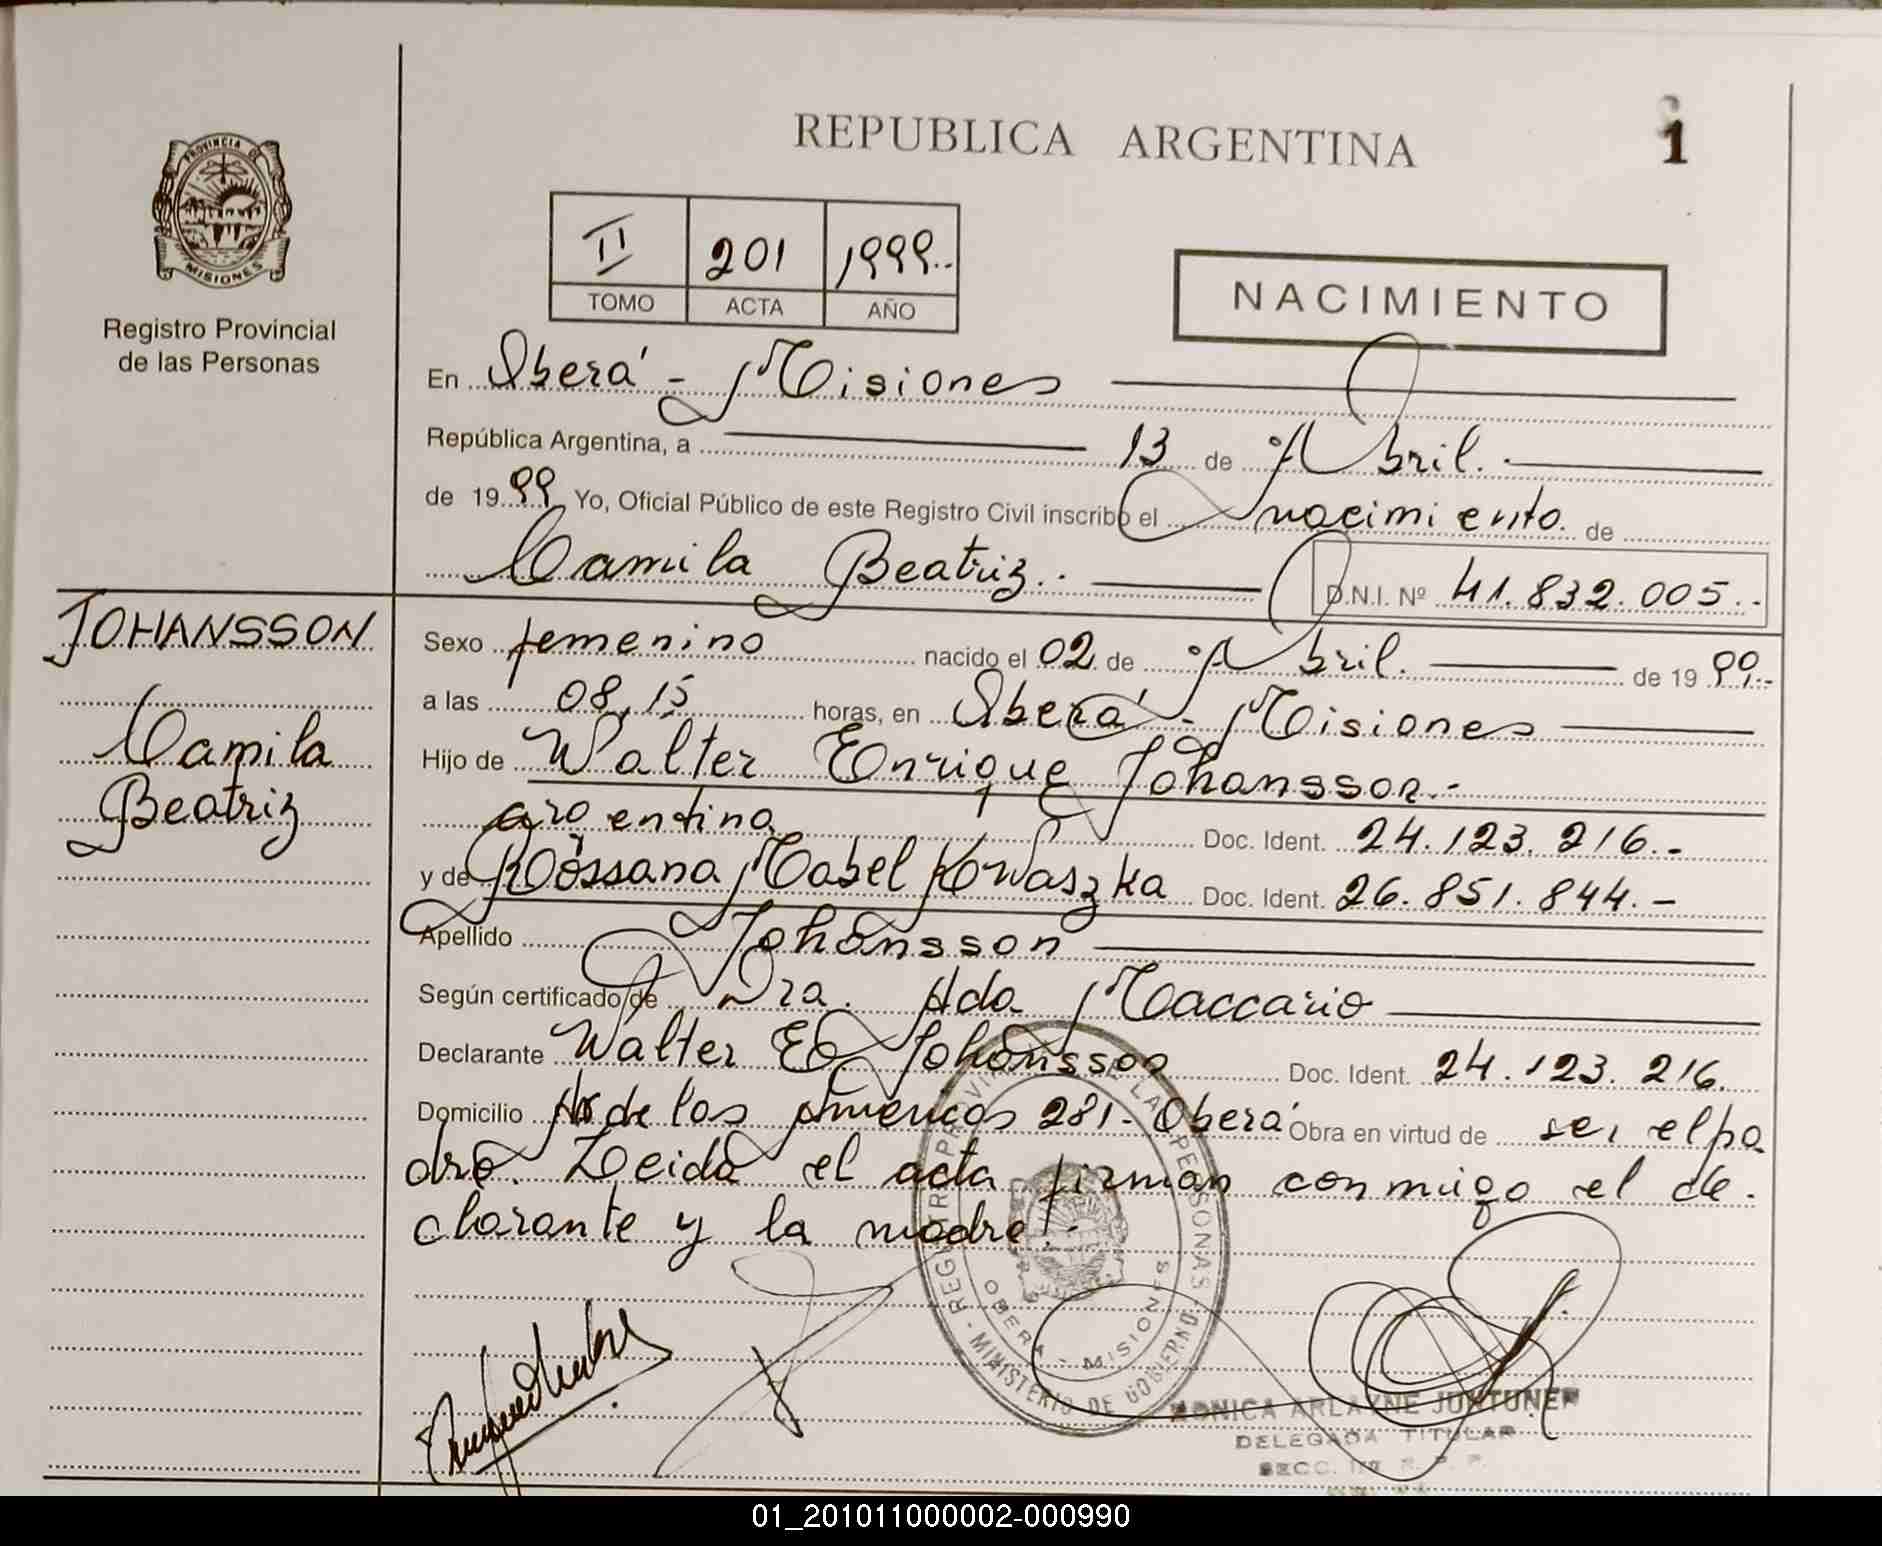 REPUBLICA ARGENTINA
1
PROVINCIA DE
MISIONES
Registro Provincial
de las Personas
II 201 1999..
TOMO ACTA AÑO
NACIMIENTO
En Oberá - Misiones
República Argentina, a 13 de Abril.
de 1999 Yo, Oficial Público de este Registro Civil inscribo el nacimiento. de
Camila Beatriz.. D.N.I. Nº 41.832.005..
JOHANSSON
Camila
Beatriz
Sexo femenino nacido el 02 de Abril. de 1999.-
a las 08,15 horas, en Oberá - Misiones
Hijo de Walter Enrique Johansson.-
argentina Doc. Ident. 24.123.216.-
y de Rossana Mabel Kowaszka Doc. Ident. 26.851.844.-
Apellido Johansson
Según certificado de Dra. Ada Maccario
Declarante Walter E. Johansson Doc. Ident. 24.123.216.
Domicilio de las Americas 281- Oberá Obra en virtud de ser el pa
dre. Leida el acta firman conmigo el de-
clarante y la madre.-
REGISTRO PROVINCIAL DE LAS PERSONAS
MINISTERIO DE GOBIERNO
OBERA - MISIONES
MONICA ARLAYNE JUNTUNEN
DELEGADA TITULAR
SECC. R. P. P.
01_201011000002-000990